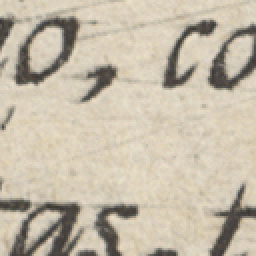 o, co
as. t